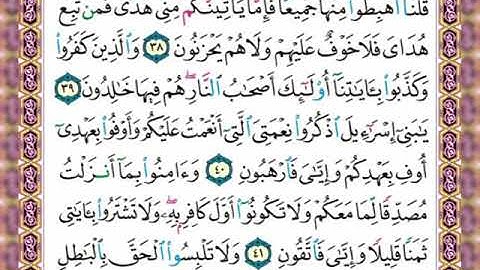 قُلْنَا اَ۪هْبِطُوا۟ مِنْهَا جَمِيعًا فَإِمَّا يَأْتِيَنَّكُم مِّنِّى هُدًى فَمَن تَبِعَ
هُدَاىَ فَلَا خَوْفٌ عَلَيْهِمْ وَلَا هُمْ يَحْزَنُونَ ٣٨ وَالَّذِينَ كَفَرُوا۟
وَكَذَّبُوا۟ بِـَٔايَـٰتِنَآ أُو۟لَـٰٓئِكَ أَصْحَـٰبُ النَّارِ هُمْ فِيهَا خَـٰلِدُونَ ٣٩
يَـٰبَنِىٓ إِسْرَٰٓءِيلَ اذْكُرُوا۟ نِعْمَتِىَ الَّتِىٓ أَنْعَمْتُ عَلَيْكُمْ وَأَوْفُوا۟ بِعَهْدِىٓ
أُوفِ بِعَهْدِكُمْ وَإِيَّـٰىَ فَارْهَبُونِ ٤٠ وَءَامِنُوا۟ بِمَآ أَنزَلْتُ
مُصَدِّقًا لِّمَا مَعَكُمْ وَلَا تَكُونُوٓا۟ أَوَّلَ كَافِرٍۭ بِهِۦ وَلَا تَشْتَرُوا۟ بِـَٔايَـٰتِى
ثَمَنًا قَلِيلًا وَإِيَّـٰىَ فَاتَّقُونِ ٤١ وَلَا تَلْبِسُوا۟ الْحَقَّ بِالْبَـٰطِلِ